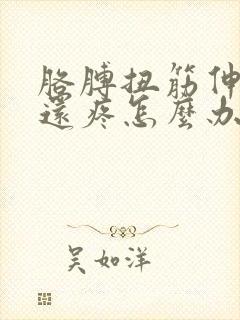 胳膊扭筋伸
還疼怎麼办
吴如洋